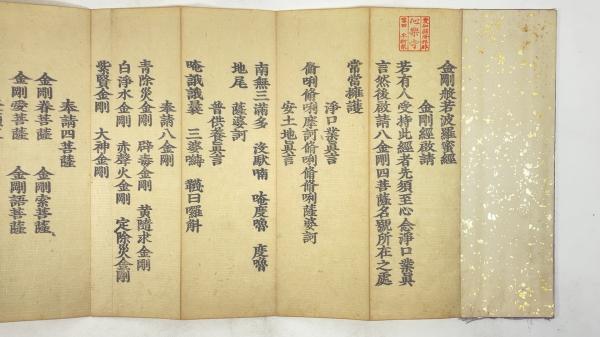 金剛般若波羅蜜經
金剛經啟請
若有人受持此經者先須至心念淨口業真
言然後啟請八金剛四菩薩名號所在之處
常當擁護
淨口業真言
脩唎脩唎摩訶脩唎脩脩唎薩婆訶
安土地真言
南無三滿多 沒䭾喃 唵度嚕 度嚕
地尾 薩婆訶
普供養真言
唵誐誐曩 三婆嚩 韈日囉斛
奉請八金剛
青除災金剛 辟毒金剛 黃隨求金剛
白淨水金剛 赤聲火金剛 定除災金剛
紫賢金剛 大神金剛
奉請四菩薩
金剛眷菩薩 金剛索菩薩
金剛愛菩薩 金剛語菩薩